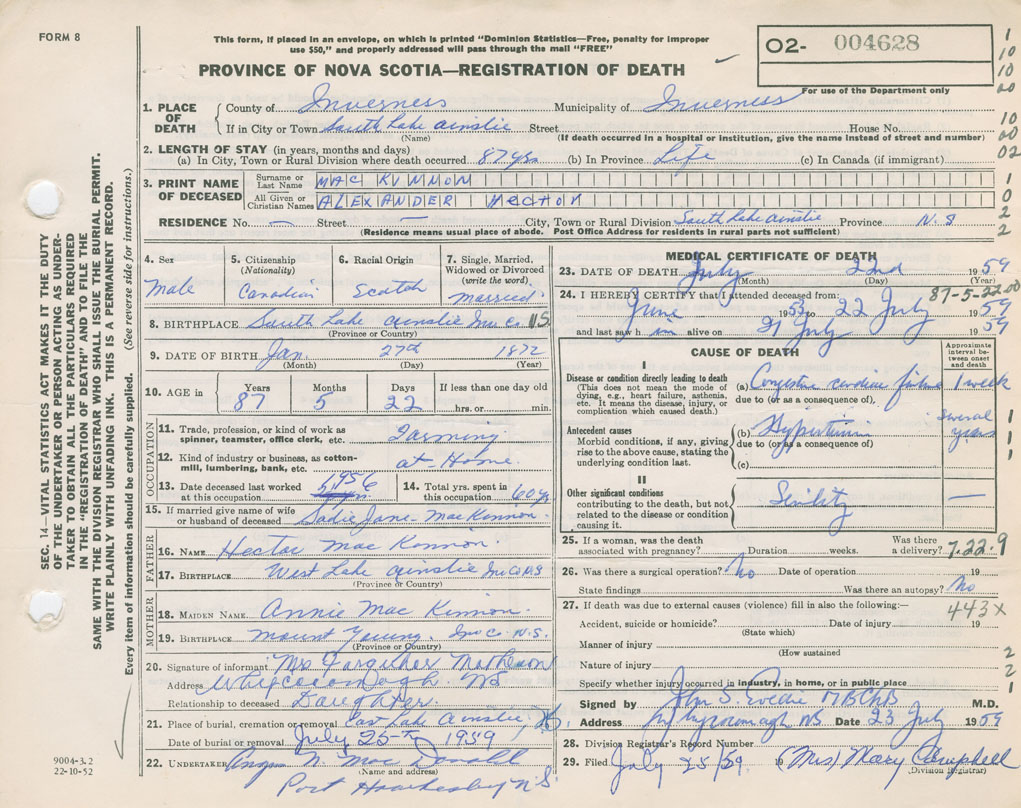 FORM 8
This form, if placed in an envelope, on which is printed "Dominion Statistics—Free, penalty for improper
use $50," and properly addressed will pass through the mail "FREE"
PROVINCE OF NOVA SCOTIA—REGISTRATION OF DEATH
O2- 004628
For use of the Department only
1
10
10
00
10
00
02
1
0
2
2
SEC. 14—VITAL STATISTICS ACT MAKES IT THE DUTY
OF THE UNDERTAKER OR PERSON ACTING AS UNDER-
TAKER TO OBTAIN ALL THE PARTICULARS REQUIRED
IN THE "REGISTRATION OF DEATH" AND TO FILE THE
SAME WITH THE DIVISION REGISTRAR WHO SHALL ISSUE THE BURIAL PERMIT.
WRITE PLAINLY WITH UNFADING INK. THIS IS A PERMANENT RECORD.
Every item of information should be carefully supplied. (See reverse side for instructions.)
1. PLACE OF DEATH
County of Inverness Municipality of Inverness
If in City or Town South Lake Ainslie Street House No.
(Name) (If death occurred in a hospital or institution, give the name instead of street and number)
2. LENGTH OF STAY (in years, months and days)
(a) In City, Town or Rural Division where death occurred 87 yrs (b) In Province Life (c) In Canada (if immigrant)
3. PRINT NAME OF DECEASED
Surname or Last Name
All Given or Christian Names ALEXANDER HECTOR
RESIDENCE No. — Street — City, Town or Rural Division South Lake Ainslie Province N.S
(Residence means usual place of abode. Post Office Address for residents in rural parts not sufficient)
4. Sex
Male
5. Citizenship
(Nationality)
Canadian
6. Racial Origin
Scotch
7. Single, Married,
Widowed or Divorced
(write the word)
Married
8. BIRTHPLACE South Lake Ainslie Inv Co N.S
(Province or Country)
9. DATE OF BIRTH Jan. 27th 1872
(Month) (Day) (Year)
10. AGE in
Years Months Days If less than one day old
87 5 22 hrs. or min.
OCCUPATION
11. Trade, profession, or kind of work as
spinner, teamster, office clerk, etc. Farming
12. Kind of industry or business, as cotton-
mill, lumbering, bank, etc. at-Home
13. Date deceased last worked
at this occupation 1956
14. Total yrs. spent in
this occupation 60 yr
15. If married give name of wife
or husband of deceased Sadie Jane MacKinnon.
FATHER
16. NAME Hector MacKinnon.
17. BIRTHPLACE West Lake Ainslie Inv Co NS
(Province or Country)
MOTHER
18. MAIDEN NAME Annie MacKinnon.
19. BIRTHPLACE Mount Young. Inv Co. N.S.
(Province or Country)
20. Signature of informant Mrs Farquhar Matheson
Address Whycocomagh. NS
Relationship to deceased Daughter.
21. Place of burial, cremation or removal East Lake Ainslie, NS.
Date of burial or removal July 25-th 1959
22. UNDERTAKER Angus N. MacDonald
(Name and address)
Port Hawkesbury N.S
9004-3.2
22-10-52
MEDICAL CERTIFICATE OF DEATH
23. DATE OF DEATH July 22nd 1959
(Month) (Day) (Year)
24. I HEREBY CERTIFY that I attended deceased from: 87-5-22.00
June 1953 to 22 July 1959
and last saw h im alive on 21 July 1959
CAUSE OF DEATH
Approximate
interval be-
tween onset
and death
I
Disease or condition directly leading to death
(This does not mean the mode of
dying, e.g., heart failure, asthenia,
etc. It means the disease, injury, or
complication which caused death.)
(a) Congestive cardiac failure 1 week
due to (or as a consequence of),
Antecedent causes
Morbid conditions, if any, giving
rise to the above cause, stating the
underlying condition last.
(b) Hypertension several years
due to (or as a consequence of)
(c)
1
1
1
II
Other significant conditions
contributing to the death, but not
related to the disease or condition
causing it.
Senility —
25. If a woman, was the death
associated with pregnancy? Duration weeks. Was there
a delivery?
7.22.9
26. Was there a surgical operation? No Date of operation 19
State findings Was there an autopsy? No
27. If death was due to external causes (violence) fill in also the following:—
443X
Accident, suicide or homicide? Date of injury 19
(State which)
Manner of injury
(How sustained
Nature of injury
Specify whether injury occurred in industry, in home, or in public place
2
2
1
Signed by M.B.Ch.B M.D.
Address Whycocomagh NS Date 23 July 1959
28. Division Registrar's Record Number
29. Filed July 25/59 19 (Mrs) Mary Campbell
(Division Registrar)